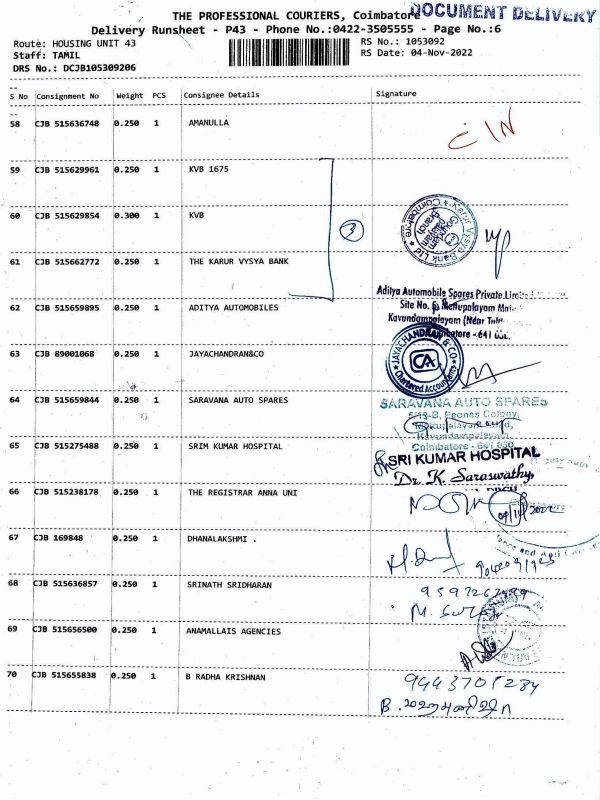 DOCUMENT DELIVERY
THE PROFESSIONAL COURIERS, Coimbatore
Delivery Runsheet - P43 - Phone No.:0422-3505555 - Page No.:6
Route: HOUSING UNIT 43
RS No.: 1053092
Staff: TAMIL
RS Date: 04-Nov-2022
DRS No.: DCJB105309206
S No Consignment No Weight PCS Consignee Details Signature
58 CJB 515636748 0.250 1 AMANULLA
59 CJB 515629961 0.250 1 KVB 1675
60 CJB 515629854 0.300 1 KVB
3
Karur Vysya Bank Ltd
Coimbatore
61 CJB 515662772 0.250 1 THE KARUR VYSYA BANK
62 CJB 515659895 0.250 1 ADITYA AUTOMOBILES
Aditya Automobile Spares Private
Site No. Mettupalayam
Kavundampalayam (Near
Coimbatore - 641
63 CJB 89001068 0.250 1 JAYACHANDRAN&CO
JAYACHANDRAN & CO
CA
Chartered Accountants
64 CJB 515659844 0.250 1 SARAVANA AUTO SPARES
SARAVANA AUTO SPARES
Peones Colony,
Kavundampalayam,
Coimbatore - 641 030.
65 CJB 515275488 0.250 1 SRIM KUMAR HOSPITAL
SRI KUMAR HOSPITAL
Dr. K. Saraswathy,
66 CJB 515238178 0.250 1 THE REGISTRAR ANNA UNI
67 CJB 169848 0.250 1 DHANALAKSHMI .
68 CJB 515636857 0.250 1 SRINATH SRIDHARAN
69 CJB 515656500 0.250 1 ANAMALLAIS AGENCIES
70 CJB 515655838 0.250 1 B RADHA KRISHNAN
9443705284